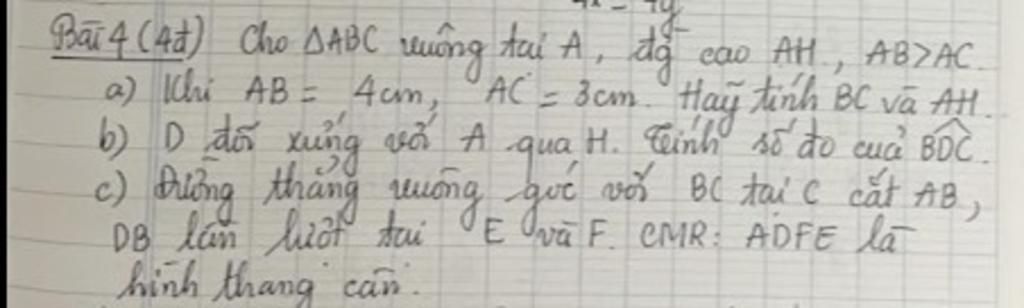 Bài 4 (4đ) Cho ΔABC vuông tại A, đg cao AH, AB>AC.
a) Khi AB = 4cm, AC = 3cm. Hãy tính BC và AH.
b) D đối xứng với A qua H. Tính số đo của \widehat{BDC}.
c) Đường thẳng vuông góc với BC tại C cắt AB,
DB lần lượt tại E và F. CMR: ADFE là
hình thang cân.